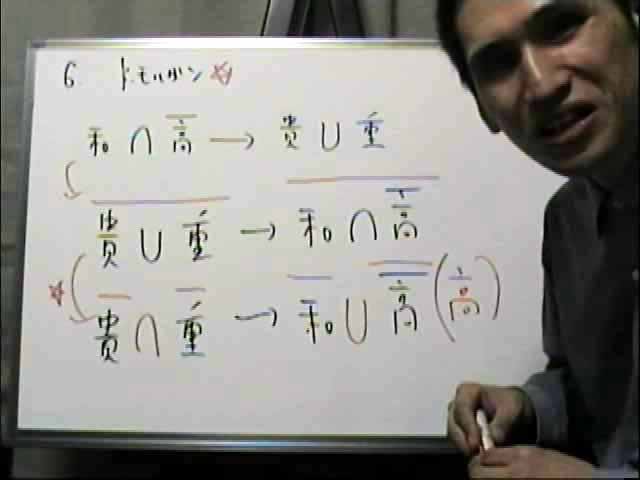 6 ド・モルガン☆
和 ∩ 高̅ → 貴 ∪ 重
貴 ∪ 重 → 和 ∩ 高̅
☆ 貴̅ ∩ 重̅ → 和̅ ∪ 高̿ (高)